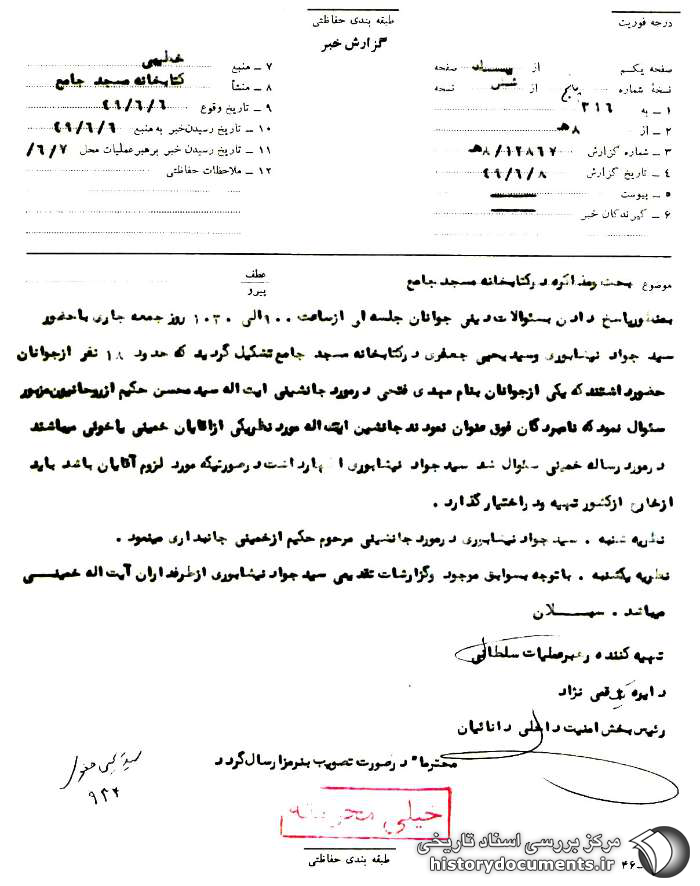 طبقه بندی حفاظتی
درجه فوریت
گزارش خبر
صفحه یکم از صفحه
نسخهٔ شماره پنج از شش نسخه
۱ – به ۳۱۶
۲ – از ۸هـ
۳ – شماره گزارش ۸/۱۲۸۶۷هـ
۴ – تاریخ گزارش ۴۹/۶/۸
۵ – پیوست
۶ – گیرندگان خبر
۷ – منبع
۸ – منشأ کتابخانه مسجد جامع
۹ – تاریخ وقوع ۴۹/۶/۶
۱۰ – تاریخ رسیدن خبر به منبع ۴۹/۶/۶
۱۱ – تاریخ رسیدن خبر برهبر عملیات محل /۶/۷
۱۲ – ملاحظات حفاظتی
موضوع بحث ومذاکره درکتابخانه مسجد جامع
عطف
پیرو
بمنظورپاسخ دادن بسئوالات دینی جوانان جلسه ای ازساعت الی ۱۰۳۰ روز جمعه جاری باحضور
سید جواد نیشابوری وسیدیحیی جعفری درکتابخانه مسجد جامع تشکیل گردید که حدود ۱۸ نفر ازجوانان
حضورداشتندکه یکی ازجوانان بنام مهدی فتحی درمورد جانشینی ایت اله سیدمحسن حکیم ازروحانیون مزبور
سئوال نمودکه نامبردگان فوق عنوان نمودندجانشین ایت اله مورد نظریکی ازاقایان خمینی یاخوئی میباشند
درمورد رساله خمینی سئوال شد سیدجواد نیشابوری اظهارداشت درصورتیکه مورد لزوم آقایان باشد باید
ازخارج ازکشور تهیه ودراختیارگذارد .
نظریه شنبه . سید جواد نیشابوری درمورد جانشینی مرحوم حکیم ازخمینی جانبداری مینمود .
نظریه یکشنبه . باتوجه بسوابق موجود وگزارشات تقدیمی سیدجواد نیشابوری ازطرفداران آیت اله خمینی
میباشد . سهلان
تهیه کننده رهبرعملیات سلطانی
دایره قمی نژاد
رئیس بخش امنیت داخلی دانائیان
محترما" درصورت تصویب بنرمزارسال گردد
سید یحیی جعفری
۹۲۴
خیلی محرمانه
طبقه بندی حفاظتی
۴۶
مرکز بررسی اسناد تاریخی
historydocuments.ir